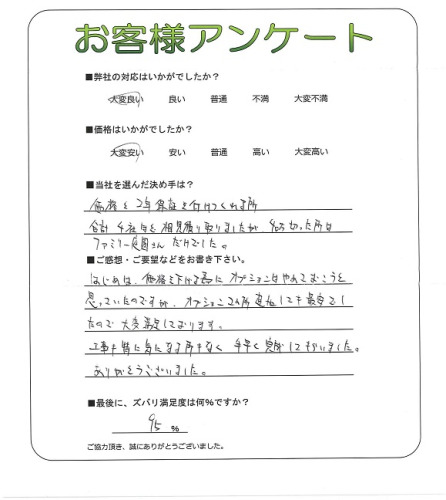 お客様アンケート
■弊社の対応はいかがでしたか？
大変良い 良い 普通 不満 大変不満
■価格はいかがでしたか？
大変安い 安い 普通 高い 大変高い
■当社を選んだ決め手は？
価格と2年保証を付けてくれる所
合計 4社から相見積り取りましたが、
ファミリー庭園さんだけでした。
■ご感想・ご要望などをお書き下さい。
はじめは、価格を下げる為にオプションはやめておこうと
思っていたのですが、オプション 追加しても最安でし
たので大変満足しております。
工事も特に気になる所もなく 手早く完成してもらいました。
ありがとうございました。
■最後に、ズバリ満足度は何%ですか？
95 %
ご協力頂き、誠にありがとうございました。